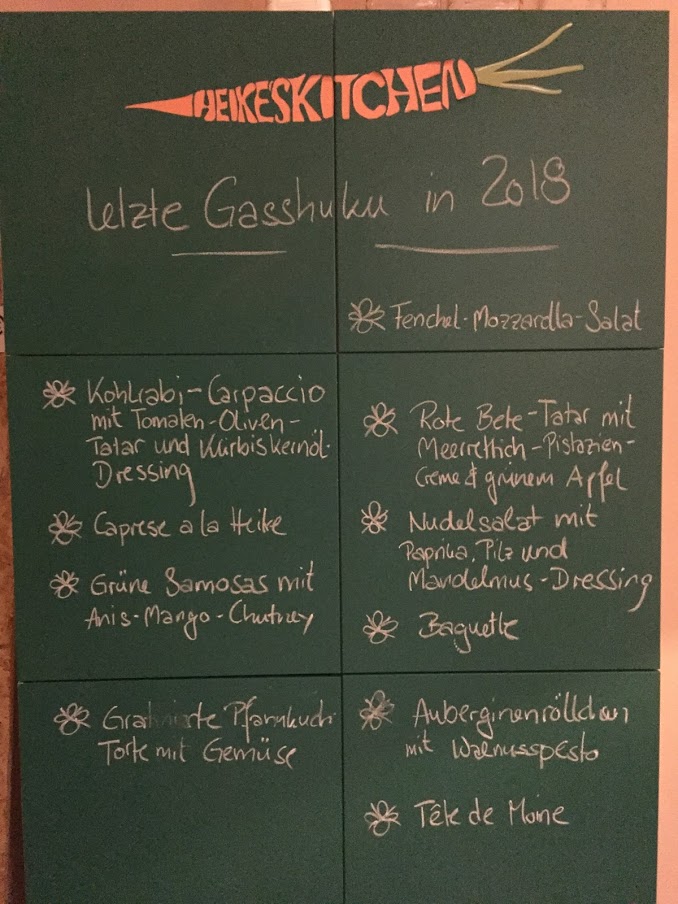 HEIKE'S KITCHEN
letzte Gasshuku in 2018
Fenchel-Mozzarella-Salat
Kohlrabi-Carpaccio
mit Tomaten-Oliven-
Tatar und Kürbiskernöl-
Dressing
Caprese a la Heike
Grüne Samosas mit
Anis-Mango-Chutney
Rote Bete-Tatar mit
Meerrettich-Pistazien-
Creme & grünem Apfel
Nudelsalat mit
Paprika, Pilz und
Mandelmus-Dressing
Baguette
Gratinierte Pfannkuch
Torte mit Gemüse
Auberginenröllchen
mit Walnusspesto
Tête de Moine